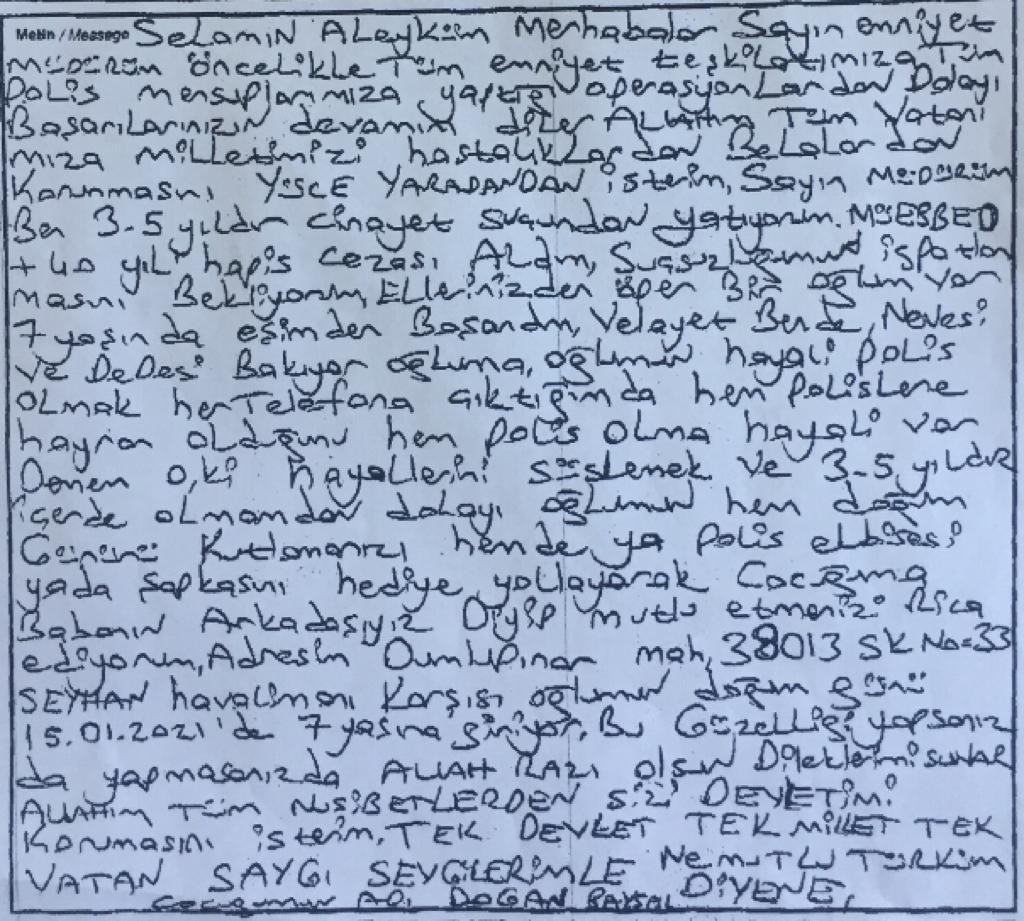 Metin / Message Selamın Aleyküm Merhabalar Sayın emniyet
müdürüm öncelikle Tüm emniyet teşkilatımıza Tüm
Polis mensuplarımıza yaptığı operasyonlardan Dolayı
Başarılarınızın devamını diler Allahım Tüm Vatanı
mıza milletimizi hastalıklardan Belalardan
Korunmasını YÜSCE YARADANDAN isterim, Sayın MÜDÜRÜM
Ben 3-5 yıldır cinayet suçundan yatıyorum. MÜEBBED
+ 40 yıl hapis cezası Aldım, Suçsuzluğumun ispatlan
masını Bekliyorum, Ellerinizden öper Bir oğlum var
7 yaşında eşimden Boşandım, Velayet Bende, Nenesi
ve DeDesi Bakıyor oğluma, oğlumun hayali polis
olmak her Telefona çıktığımda hem polislere
hayran olduğunu hem polis olma hayali var
Dönen o,ki hayallerini süslemek ve 3-5 yıldır
içerde olmamdan dolayı oğlumun hem doğum
Gününü Kutlamanızı hemde ya polis elbisesi
yada şapkasını hediye yollayarak Çocuğma
Babanın Arkadaşıyız Diyip mutlu etmenizi Rica
ediyorum, Adresim Dumlupınar mah, 38013 SK No=33
SEYHAN havalimanı Karşısı oğlumun doğum günü
15.01.2021'de 7 yaşına giriyor. Bu Güzelliği yapsanız
da yapmasanızda ALLAH RAZI olsun Dileklerimi sunar
Allahım Tüm MUSİBETLERDEN sizi DEVLETİMİ
Korumasını isterim. TEK DEVLET TEK MİLLET TEK
VATAN SAYGI SEVGİLERİMLE Ne MUTLU TÜRKÜM
DİYENE,
Çocuğumun ADI DOĞAN BAYSAL